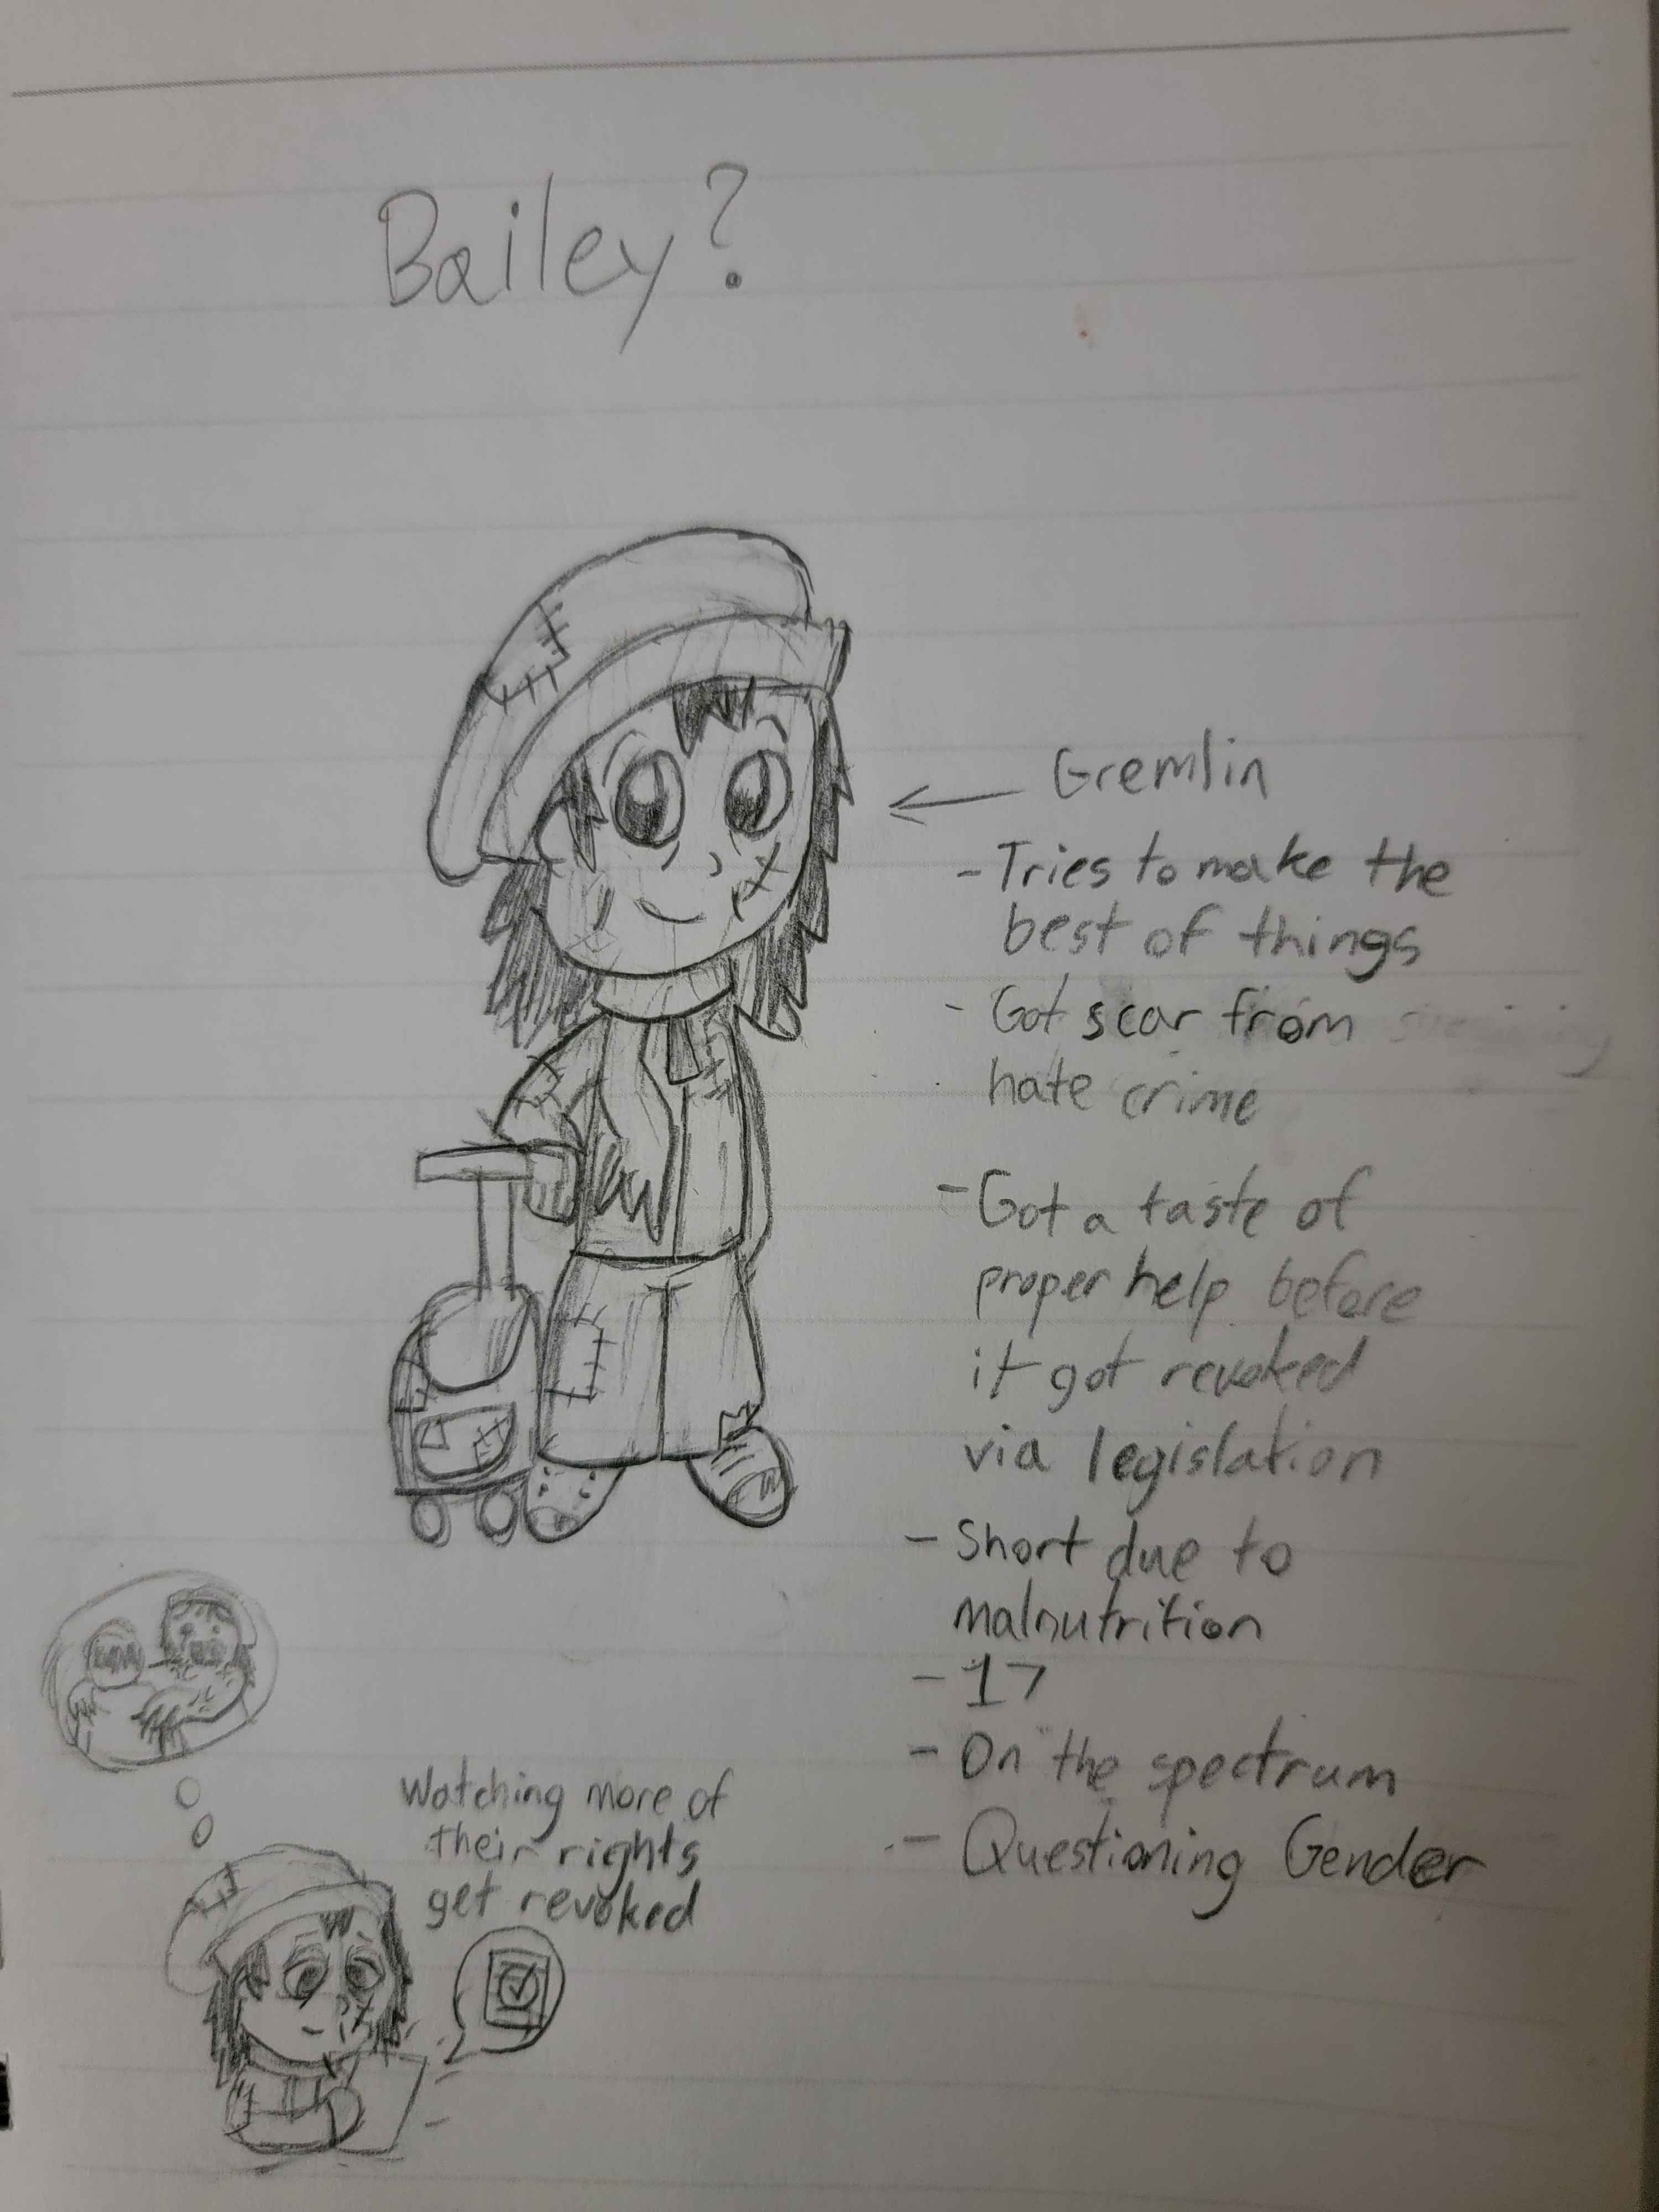 Bailey?
Gremlin
- Tries to make the
best of things
- Got scar from
hate crime
- Got a taste of
proper help before
it got revoked
via legislation
- Short due to
malnutrition
- 17
- On the spectrum
- Questioning Gender
Watching more of
their rights
get revoked